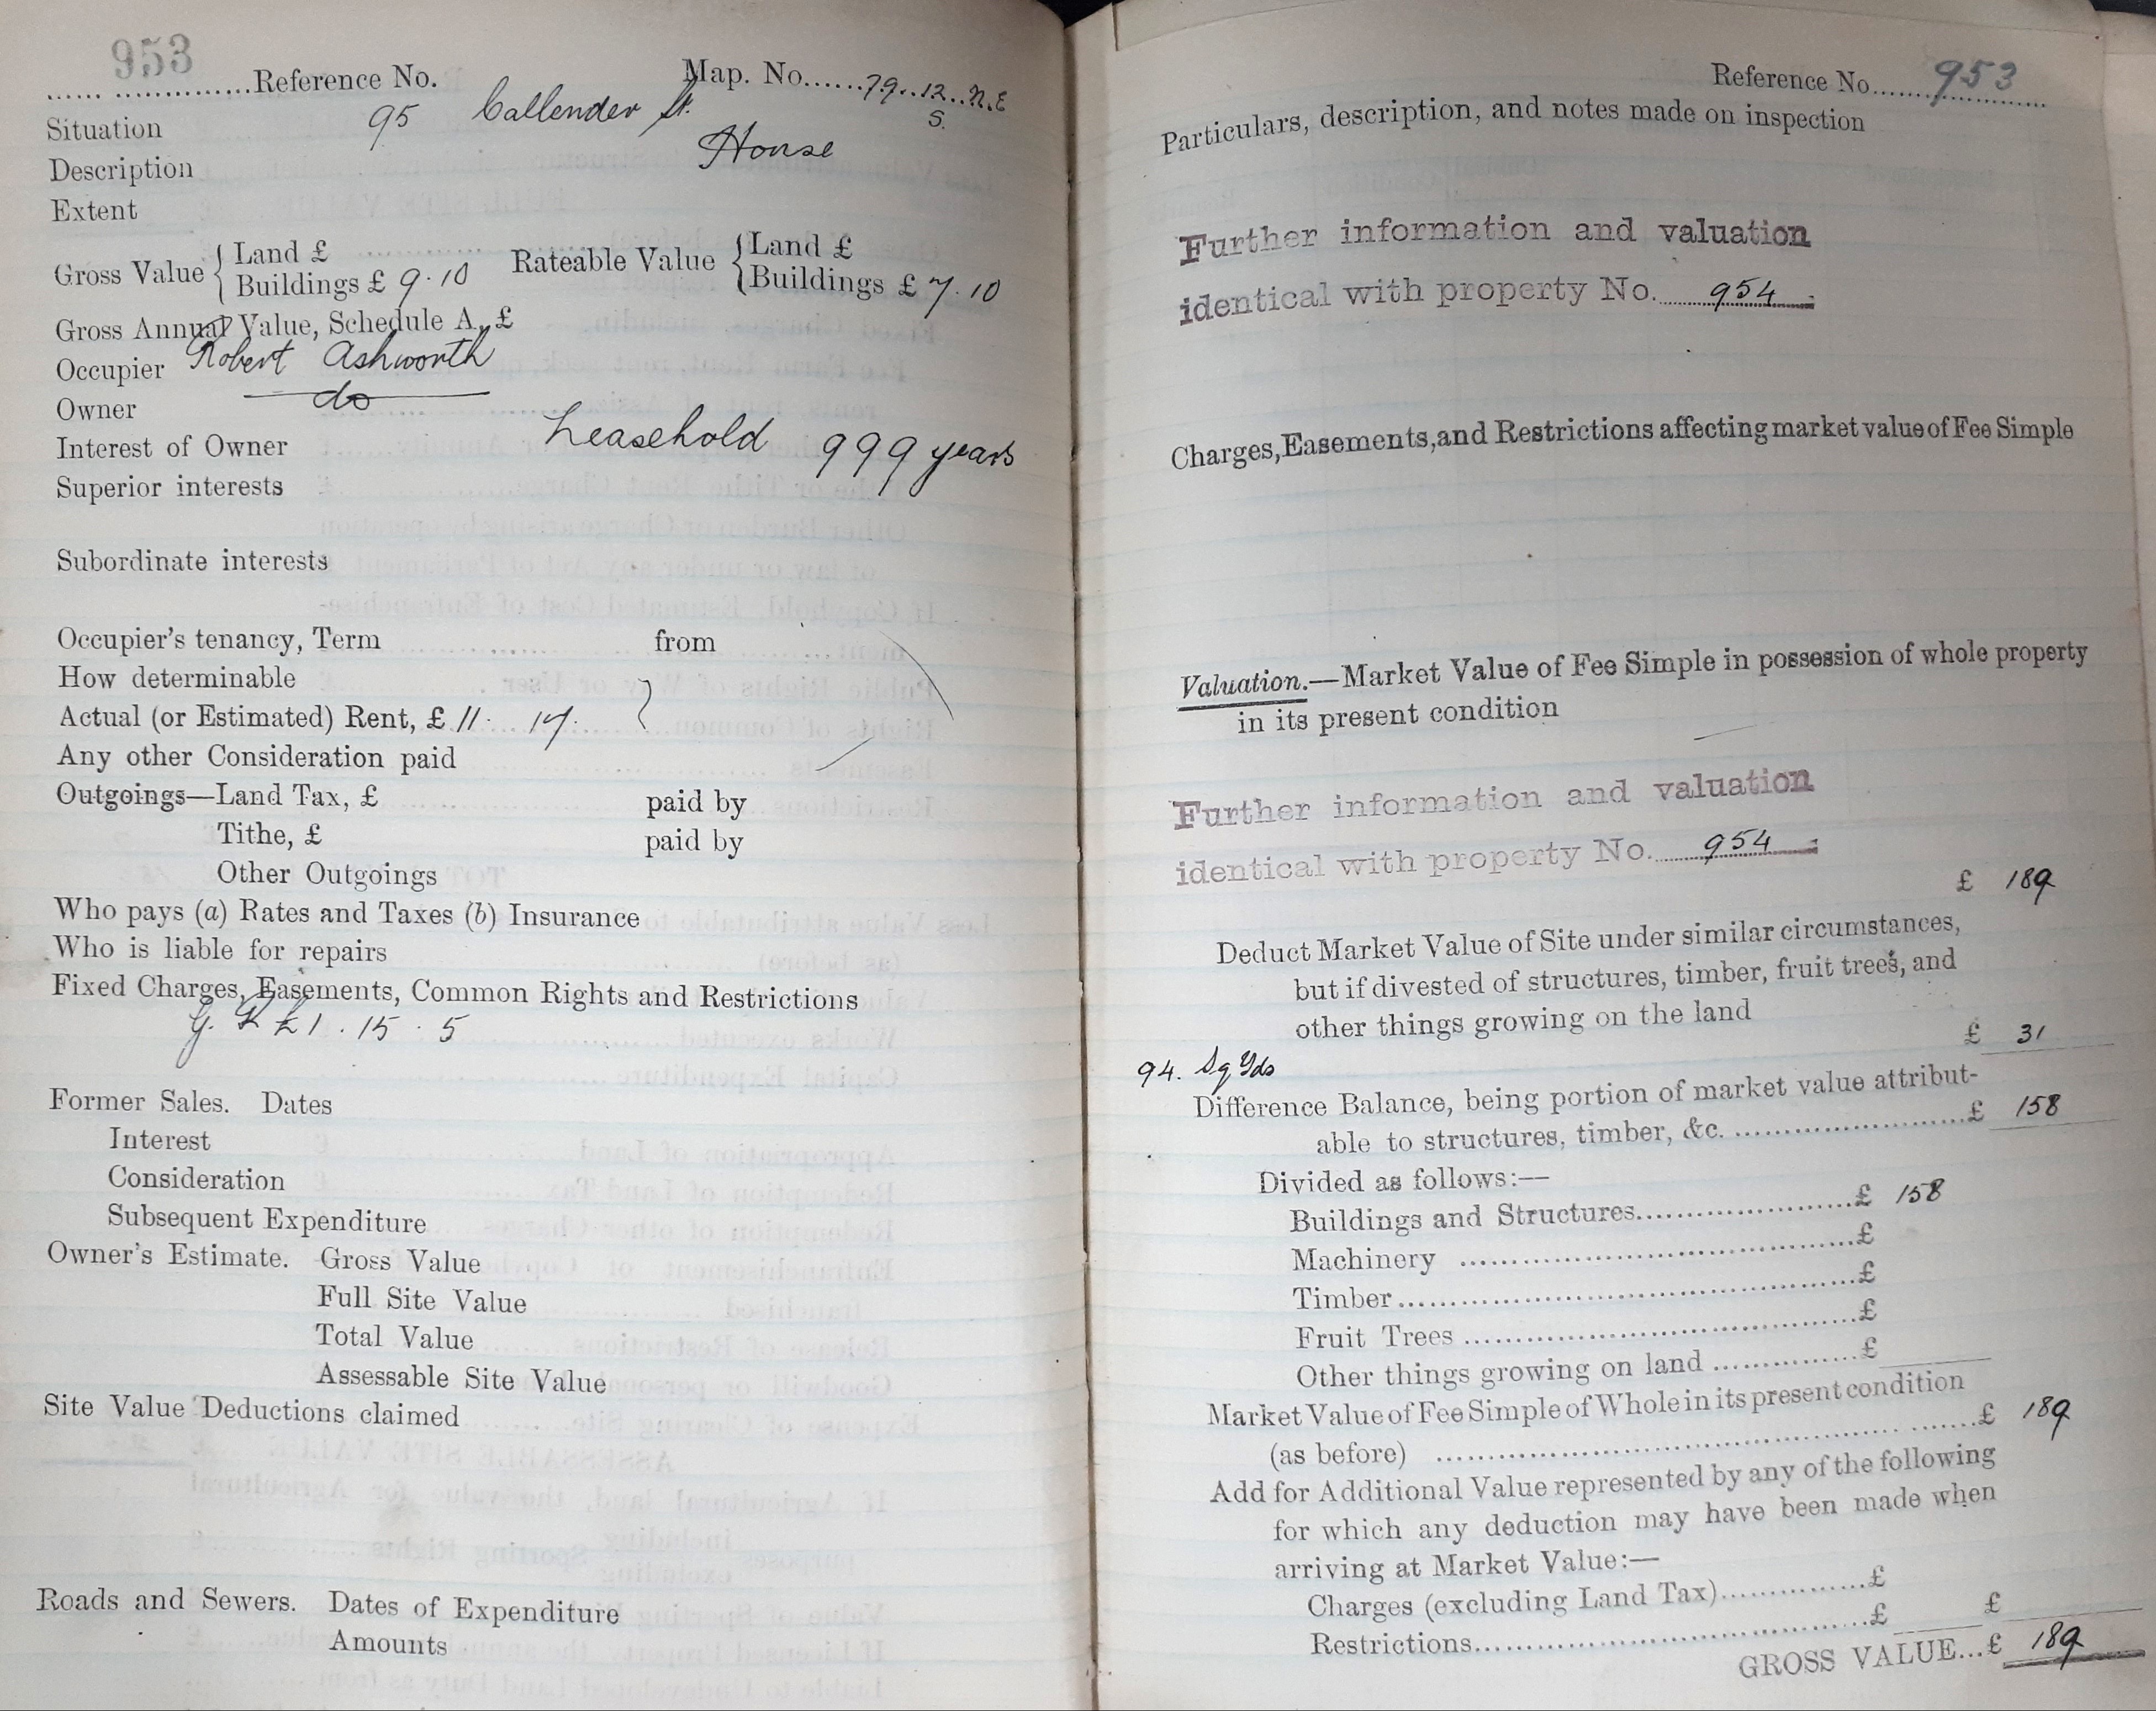 953
...... ..............Reference No. Map. No......79..12..N.E
S.
Situation 95 Callender St.
Description House
Extent
Gross Value { Land £ Rateable Value { Land £
Buildings £ 9.10 Buildings £ 7.10
Gross Annual Value, Schedule A, £
Occupier Robert Ashworth
Owner do
Interest of Owner Leasehold 999 years
Superior interests
Subordinate interests
Occupier's tenancy, Term from
How determinable
Actual (or Estimated) Rent, £ 11. 14.
Any other Consideration paid
Outgoings—Land Tax, £ paid by
Tithe, £ paid by
Other Outgoings
Who pays (a) Rates and Taxes (b) Insurance
Who is liable for repairs
Fixed Charges, Easements, Common Rights and Restrictions
G. R £1 . 15 . 5
Former Sales. Dates
Interest
Consideration
Subsequent Expenditure
Owner's Estimate. Gross Value
Full Site Value
Total Value
Assessable Site Value
Site Value Deductions claimed
Roads and Sewers. Dates of Expenditure
Amounts
Reference No. 953
Particulars, description, and notes made on inspection
Further information and valuation
identical with property No. 954
Charges, Easements, and Restrictions affecting market value of Fee Simple
Valuation.—Market Value of Fee Simple in possession of whole property
in its present condition
Further information and valuation
identical with property No. 954
£ 189
Deduct Market Value of Site under similar circumstances,
but if divested of structures, timber, fruit trees, and
other things growing on the land
£ 31
94. Sq Yds
Difference Balance, being portion of market value attribut-
able to structures, timber, &c. ........................£ 158
Divided as follows:—
Buildings and Structures.......................£ 158
Machinery .......................................£
Timber.............................................£
Fruit Trees .......................................£
Other things growing on land ...............£
Market Value of Fee Simple of Whole in its present condition
(as before) .......................................£ 189
Add for Additional Value represented by any of the following
for which any deduction may have been made when
arriving at Market Value:—
Charges (excluding Land Tax)...............£
Restrictions.......................................£ £
GROSS VALUE...£ 189